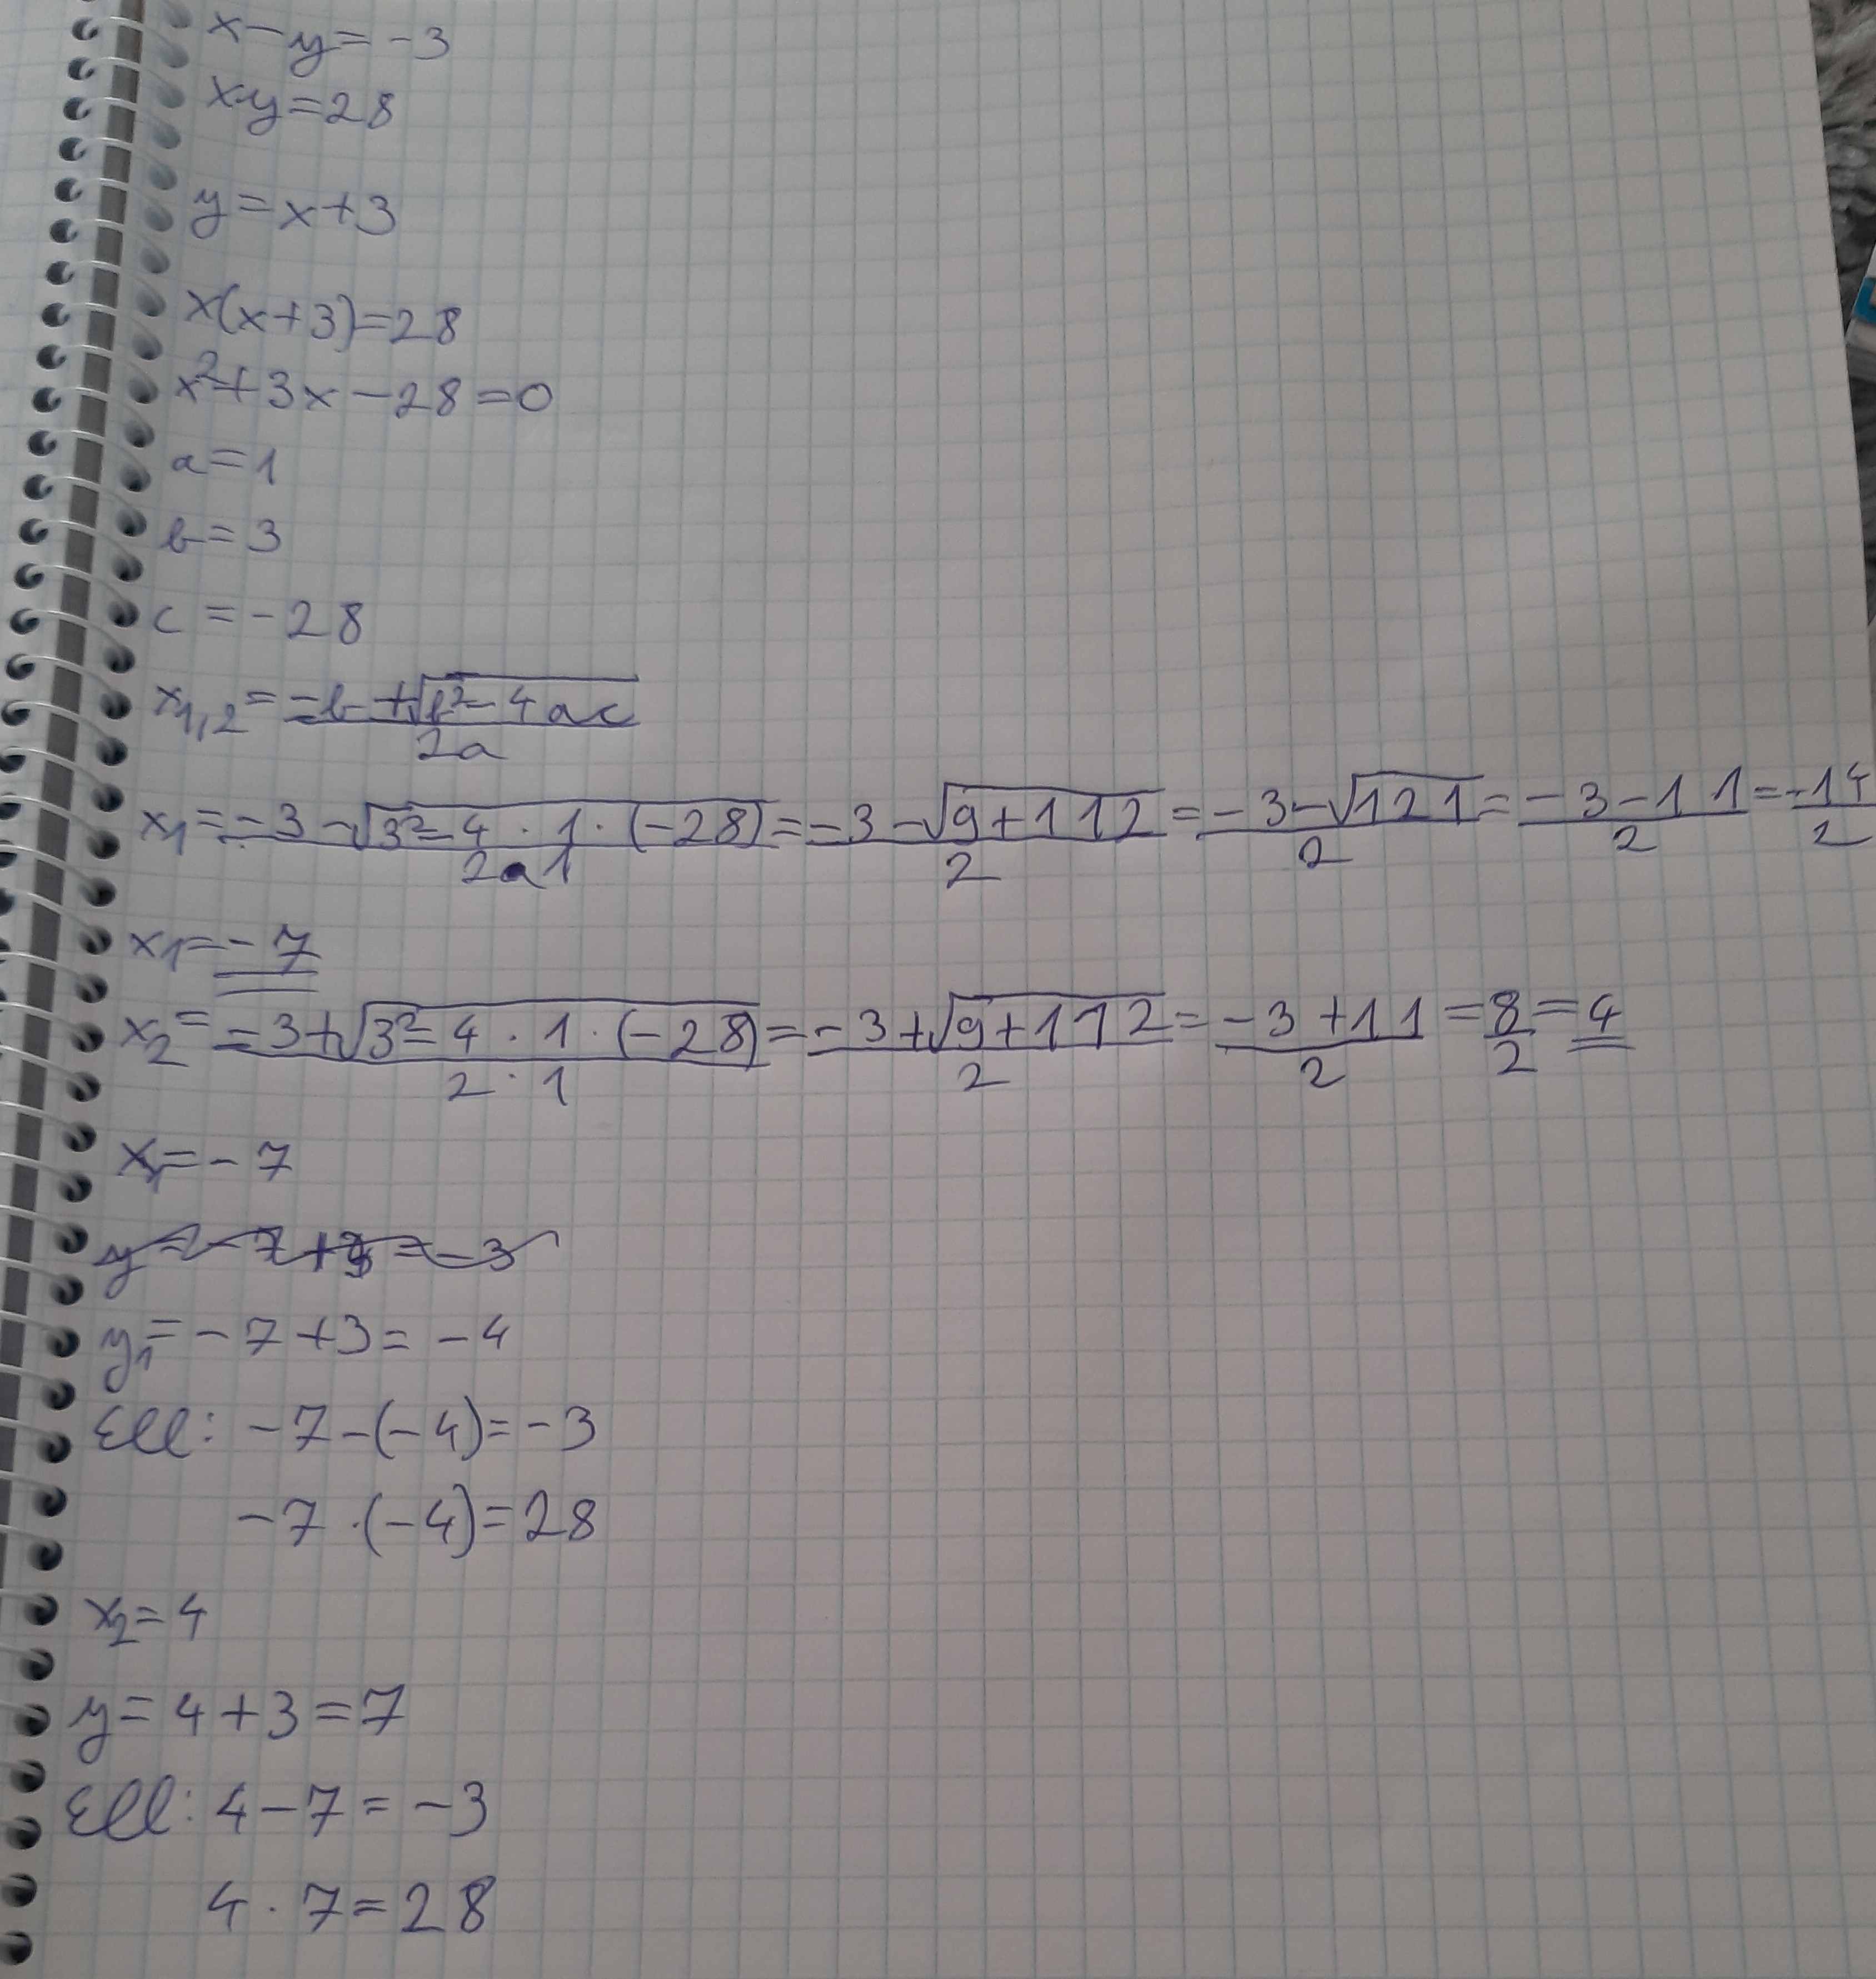 x-y=-3
xy=28
y=x+3
x(x+3)=28
x²+3x-28=0
a=1
b=3
c=-28
x1,2=-b+√b²-4ac/2a
x1=-3-√3²-4·1·(-28)/2·1=-3-√9+112/2=-3-√121/2=-3-11/2=-14/2
x1=-7
x2=-3+√3²-4·1·(-28)/2·1=-3+√9+112/2=-3+11/2=8/2=4
x1=-7
y1=-7+3=-4
Ell: -7-(-4)=-3
-7·(-4)=28
x2=4
y=4+3=7
Ell: 4-7=-3
4·7=28